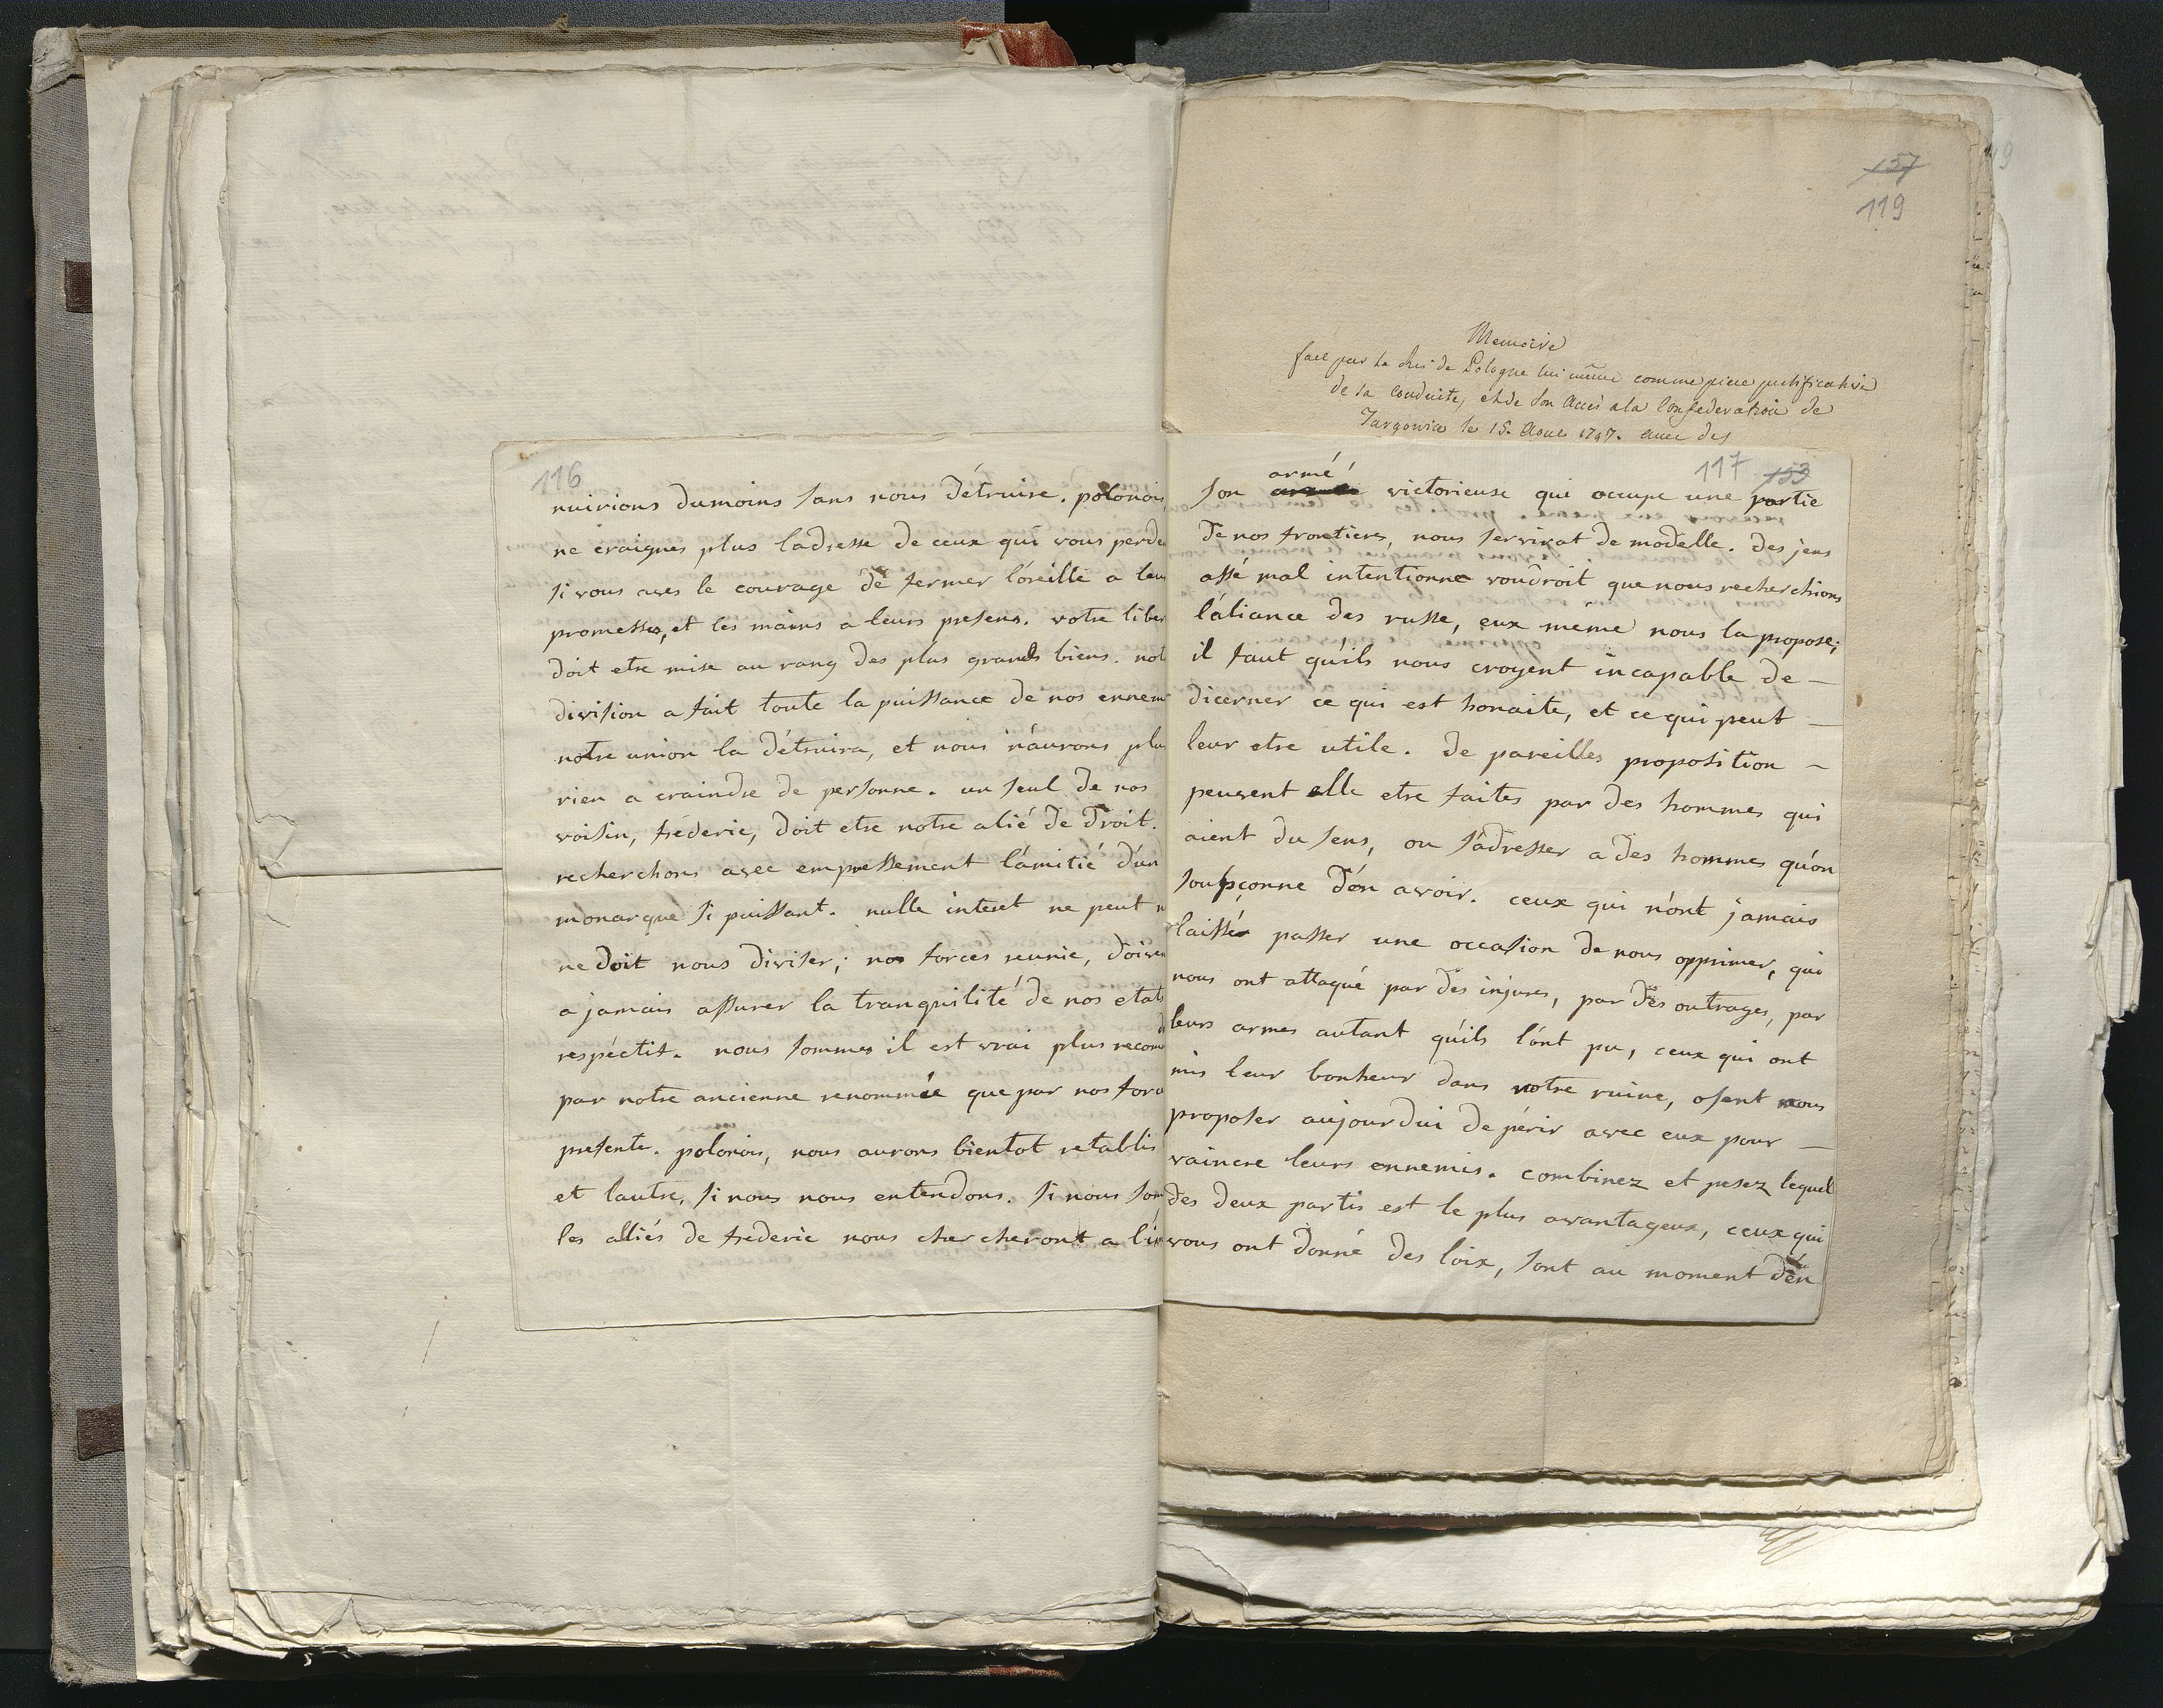 116
nuirions dumoins sans nous détruire. polonois,
ne craignes plus ladresse de ceux qui vous perde
si vous aves le courage de fermer l'óreille a leu
promesses, et les mains a leurs presens. votre liber
doit etre mise au rang des plus grands biens. not
division a fait toute la puissance de nos ennem
notre union la détruira, et nous n'aurons plu
rien a craindre de personne. un seul de nos
voisin, fréderic, doit etre notre alié de droit.
recherchons avec empressement l'amitié d'un
monarque si puissant. nulle interet ne peut n
ne doit nous diviser; nos forces reunie, doiven
a jamais assurer la tranquilité de nos etats
respéctif. nous sommes il est vrai plus recom
par notre ancienne renommée que par nos forc
presente. polonois, nous aurons bientot retablis
et lautre, si nous nous entendons. si nous som
les alliés de frederic nous chercheront a l'im
157
119
Memoire
fait par le Roi de Pologne lui même comme piece justificative
de sa conduite, et de son Accès a la Confederation de
Targowica le 15. Aout 1797. avec des
117 153
armé
son victorieuse qui occupe une partie
de nos frontiers, nous servirat de modelle. des jens
assé mal intentionne voudroit que nous recherchions
l'aliance des russe, eux même nous la propose;
il faut qu'ils nous croyent incapable de –
dicerner ce qui est honaite, et ce qui peut –
leur etre utile. de pareilles proposition –
peuvent elle etre faites par des hommes qui
aient du sens, ou s'adresser a des hommes qu'on
soupçonne d'én avoir. ceux qui n'ont jamais
laissés passer une occasion de nous opprimer, qui
nous ont attaqué par des injures, par des outrages, par
leurs armes autant qu'ils l'ont pu, ceux qui ont
mis leur bonheur dans notre ruine, osent nous
proposer aujourdui de périr avec eux pour –
vaincre leurs ennemis. combinez et pesez lequel
des deux partis est le plus avantageux, ceux qui
vous ont donné des loix, sont au moment d'én